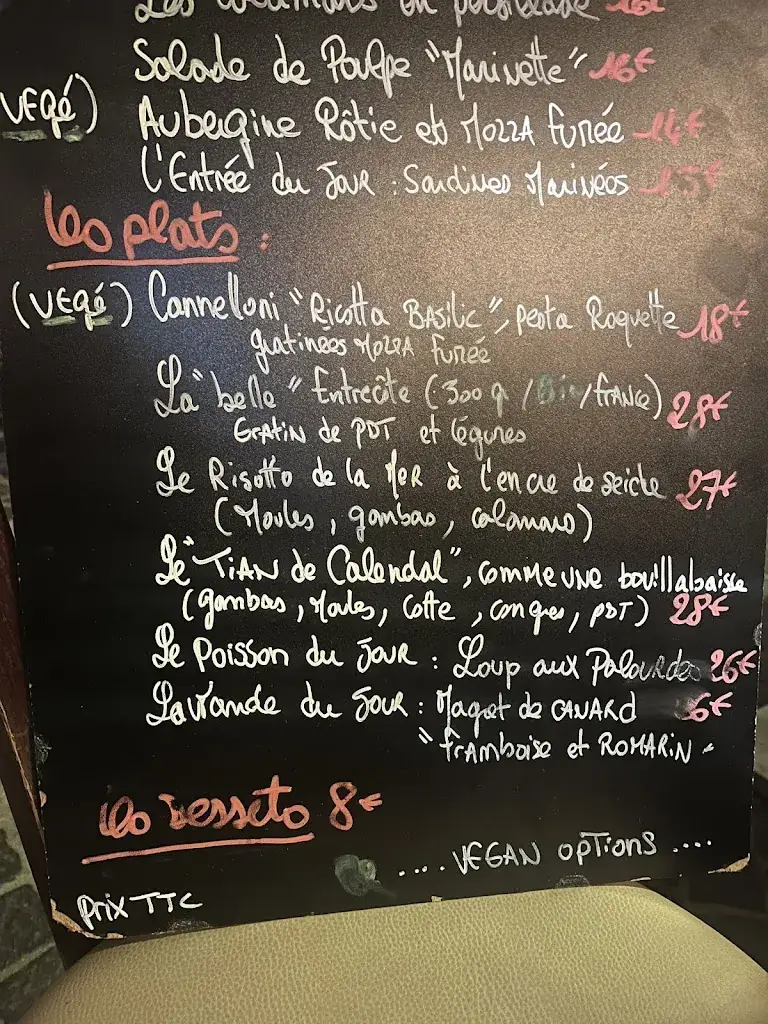 Les calamars en persillade 16€
Salade de Poulpe "Marinette" 16€
végé) Aubergine Rôtie et Mozza fumée 14€
L'Entrée du Jour : Sardines Marinées 15€
Les plats :
(végé) Cannelloni "Ricotta Basilic", pesto Roquette 18€
gratinées Mozza fumée
La "belle" Entrecôte (300g / Bio / france) 28€
Gratin de PDT et légumes
Le Risotto de la Mer à l'encre de seiche 27€
(Moules, gambas, calamars)
Le "Tian de Calendal", comme une bouillabaisse
(gambas, Moules, lotte, congre, PDT) 28€
Le Poisson du Jour : Loup aux Palourdes 26€
La viande du Jour : Magret de CANARd 6€
"frAmboise et ROMARiN"
Les Desserts 8€
.... VEGAN OPTIONS ....
prix TTC